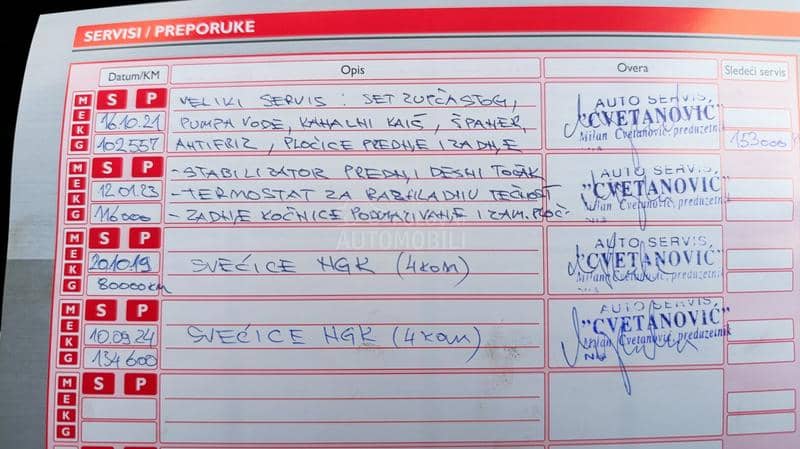 SERVISI / PREPORUKE
Datum/KM Opis Overa Sledeći servis
M E K G S P
16.10.21
102557
VELIKI SERVIS : SET ZUPČASTOG,
PUMPA VODE, KANALNI KAIŠ, ŠPANER,
ANTIFRIZ, PLOČICE PREDNJE I ZADNJE
AUTO SERVIS,
"CVETANOVIĆ"
Milan Cvetanović preduzetnik
153000
M E K G S P
12.01.23
116000
- STABILIZATOR PREDNJI DESNI TOČAK
- TERMOSTAT ZA RASHLADNU TEČNOST
- ZADNJE KOČNICE PODMAZIVANJE I ZAM. PLOČ.
AUTO SERVIS,
"CVETANOVIĆ"
Milan Cvetanović preduzetnik
Niš
AUTOMOBILI
M E K G S P
20.10.19
80000KM
SVEĆICE NGK (4kom)
AUTO SERVIS,
"CVETANOVIĆ"
Milan Cvetanović preduzetnik
M E K G S P
10.09.24
134600
SVEĆICE NGK (4kom)
AUTO SERVIS,
"CVETANOVIĆ"
Milan Cvetanović preduzetnik
Niš
M E K G S P